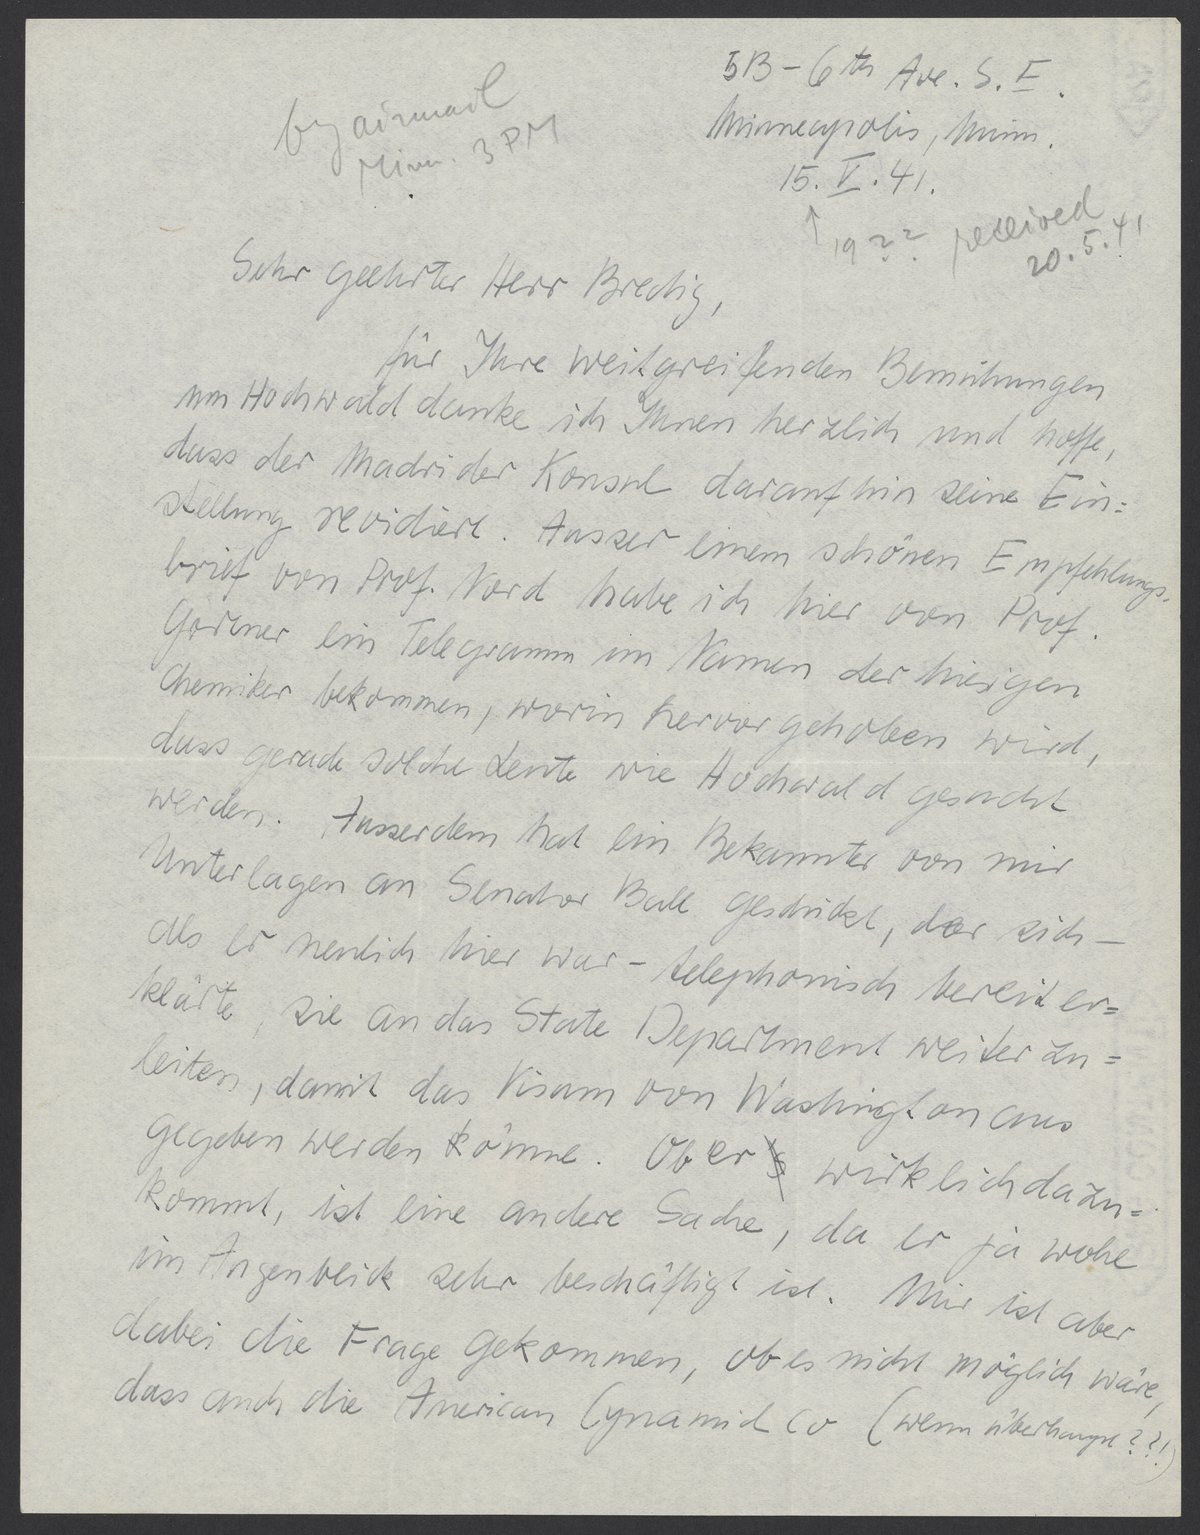 by airmail
Minn. 3 PM
5B – 6th Ave. S. E.
Minneapolis, Minn.
15. V. 41.
↑ 19?? received
20. 5. 41
Sehr geehrter Herr Bredig,
für Ihre weitgreifenden Bemühungen
um Hochwald danke ich Ihnen herzlich und hoffe,
dass der Madrider Konsul daraufhin seine Ein=
stellung revidiert. Ausser einem schönen Empfehlungs-
brief von Prof. Nord habe ich hier von Prof.
Gortner ein Telegramm im Namen der hiesigen
Chemiker bekommen, worin hervorgehoben wird,
dass gerade solche Leute wie Hochwald gesucht
werden. Ausserdem hat ein Bekannter von mir
Unterlagen an Senator Ball geschickt, der sich –
als er neulich hier war – telephonisch bereit er=
klärte, sie an das State Department weiterzu=
leiten, damit das Visum von Washington aus
gegeben werden könne. Ob er wirklich dazu=
kommt, ist eine andere Sache, da er ja wohl
im Augenblick sehr beschäftigt ist. Mir ist aber
dabei die Frage gekommen, ob es nicht möglich wäre,
dass auch die American Cynamid Co (wenn überhaupt??!)